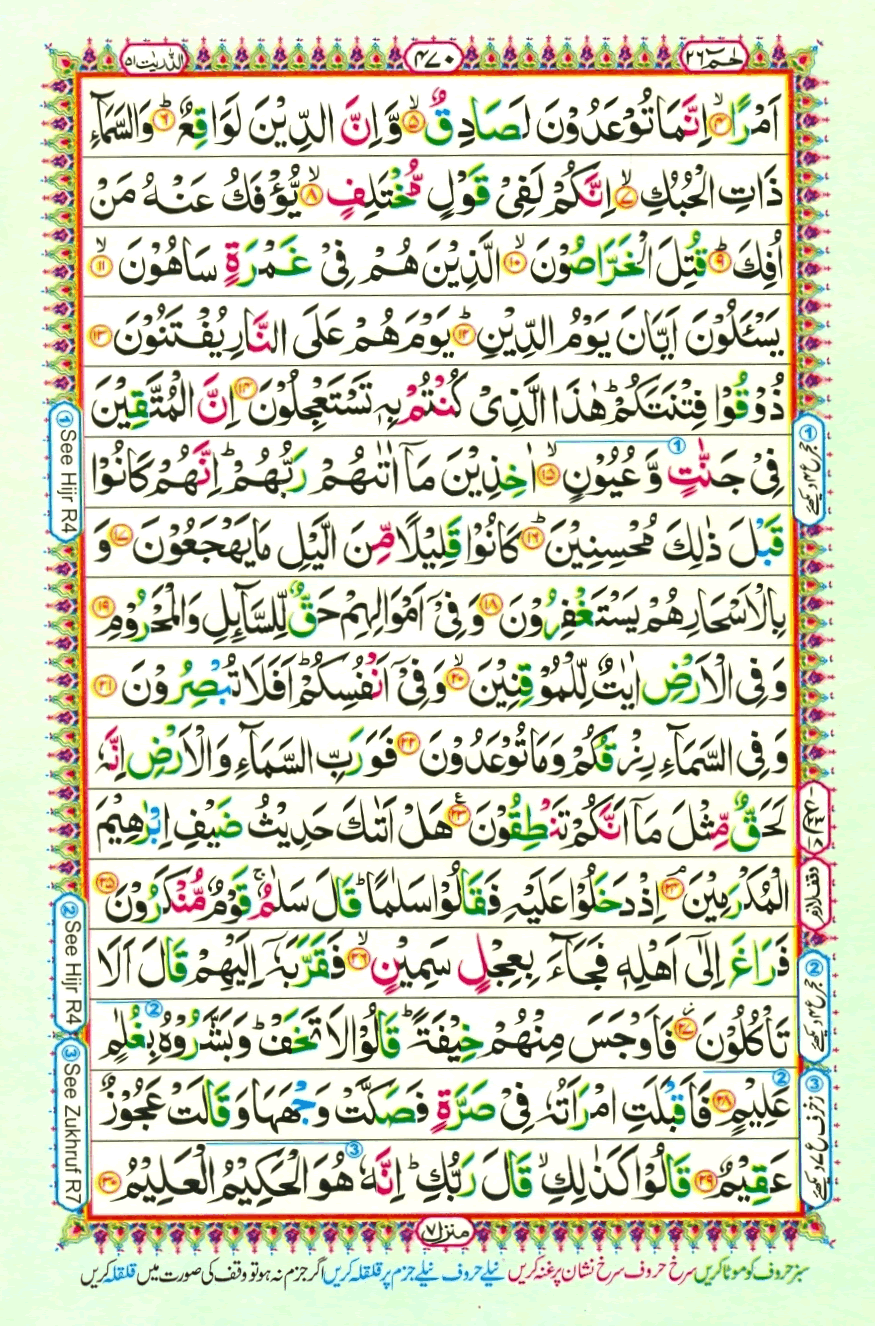 حٰمٓ ٢٦
٤٧٠
الذّٰریٰت ٥١
اَمْرًا ﴿٤﴾ اِنَّمَا تُوْعَدُوْنَ لَصَادِقٌ ﴿٥﴾ وَّاِنَّ الدِّيْنَ لَوَاقِعٌ ﴿٦﴾ وَالسَّمَآءِ
ذَاتِ الْحُبُكِ ﴿٧﴾ اِنَّكُمْ لَفِيْ قَوْلٍ مُّخْتَلِفٍ ﴿٨﴾ يُّؤْفَكُ عَنْهُ مَنْ
اُفِكَ ﴿٩﴾ قُتِلَ الْخَرّٰصُوْنَ ﴿١٠﴾ الَّذِيْنَ هُمْ فِيْ غَمْرَةٍ سَاهُوْنَ ﴿١١﴾
يَسْـَٔلُوْنَ اَيَّانَ يَوْمُ الدِّيْنِ ﴿١٢﴾ يَوْمَ هُمْ عَلَى النَّارِ يُفْتَنُوْنَ ﴿١٣﴾
ذُوْقُوْا فِتْنَتَكُمْ ؕ هٰذَا الَّذِيْ كُنْتُمْ بِهٖ تَسْتَعْجِلُوْنَ ﴿١٤﴾ اِنَّ الْمُتَّقِيْنَ
فِيْ جَنّٰتٍ وَّعُيُوْنٍ ﴿١٥﴾ اٰخِذِيْنَ مَاۤ اٰتٰىهُمْ رَبُّهُمْ ؕ اِنَّهُمْ كَانُوْا
قَبْلَ ذٰلِكَ مُحْسِنِيْنَ ﴿١٦﴾ كَانُوْا قَلِيْلًا مِّنَ الَّيْلِ مَا يَهْجَعُوْنَ ﴿١٧﴾ وَ
بِالْاَسْحَارِ هُمْ يَسْتَغْفِرُوْنَ ﴿١٨﴾ وَفِيْۤ اَمْوَالِهِمْ حَقٌّ لِّلسَّآئِلِ وَالْمَحْرُوْمِ ﴿١٩﴾
وَفِي الْاَرْضِ اٰيٰتٌ لِّلْمُوْقِنِيْنَ ﴿٢٠﴾ وَفِيْۤ اَنْفُسِكُمْ ؕ اَفَلَا تُبْصِرُوْنَ ﴿٢١﴾
وَفِي السَّمَآءِ رِزْقُكُمْ وَمَا تُوْعَدُوْنَ ﴿٢٢﴾ فَوَرَبِّ السَّمَآءِ وَالْاَرْضِ اِنَّهٗ
لَحَقٌّ مِّثْلَ مَاۤ اَنَّكُمْ تَنْطِقُوْنَ ﴿٢٣﴾ هَلْ اَتٰىكَ حَدِيْثُ ضَيْفِ اِبْرٰهِيْمَ
الْمُكْرَمِيْنَ ﴿٢٤﴾ اِذْ دَخَلُوْا عَلَيْهِ فَقَالُوْا سَلٰمًا ؕ قَالَ سَلٰمٌ ۚ قَوْمٌ مُّنْكَرُوْنَ ﴿٢٥﴾
فَرَاغَ اِلٰۤى اَهْلِهٖ فَجَآءَ بِعِجْلٍ سَمِيْنٍ ﴿٢٦﴾ فَقَرَّبَهٗۤ اِلَيْهِمْ قَالَ اَلَا
تَاْكُلُوْنَ ﴿٢٧﴾ فَاَوْجَسَ مِنْهُمْ خِيْفَةً ؕ قَالُوْا لَا تَخَفْ ؕ وَبَشَّرُوْهُ بِغُلٰمٍ
عَلِيْمٍ ﴿٢٨﴾ فَاَقْبَلَتِ امْرَاَتُهٗ فِيْ صَرَّةٍ فَصَكَّتْ وَجْهَهَا وَقَالَتْ عَجُوْزٌ
عَقِيْمٌ ﴿٢٩﴾ قَالُوْا كَذٰلِكِ ۙ قَالَ رَبُّكِ ؕ اِنَّهٗ هُوَ الْحَكِيْمُ الْعَلِيْمُ ﴿٣٠﴾
وقف لازم
① See Hijr R4
② See Hijr R4
③ See Zukhruf R7
① حجر ع ٤ دیکھئے
② حجر ع ٤ دیکھئے
③ زخرف ع ٧ دیکھئے
منزل ٧
سبز حروف کو موٹا کریں سرخ حروف سرخ نشان پر غنہ کریں نیلے حروف نیلے جزم پر قلقلہ کریں اگر جزم نہ ہو تو وقف کی صورت میں قلقلہ کریں